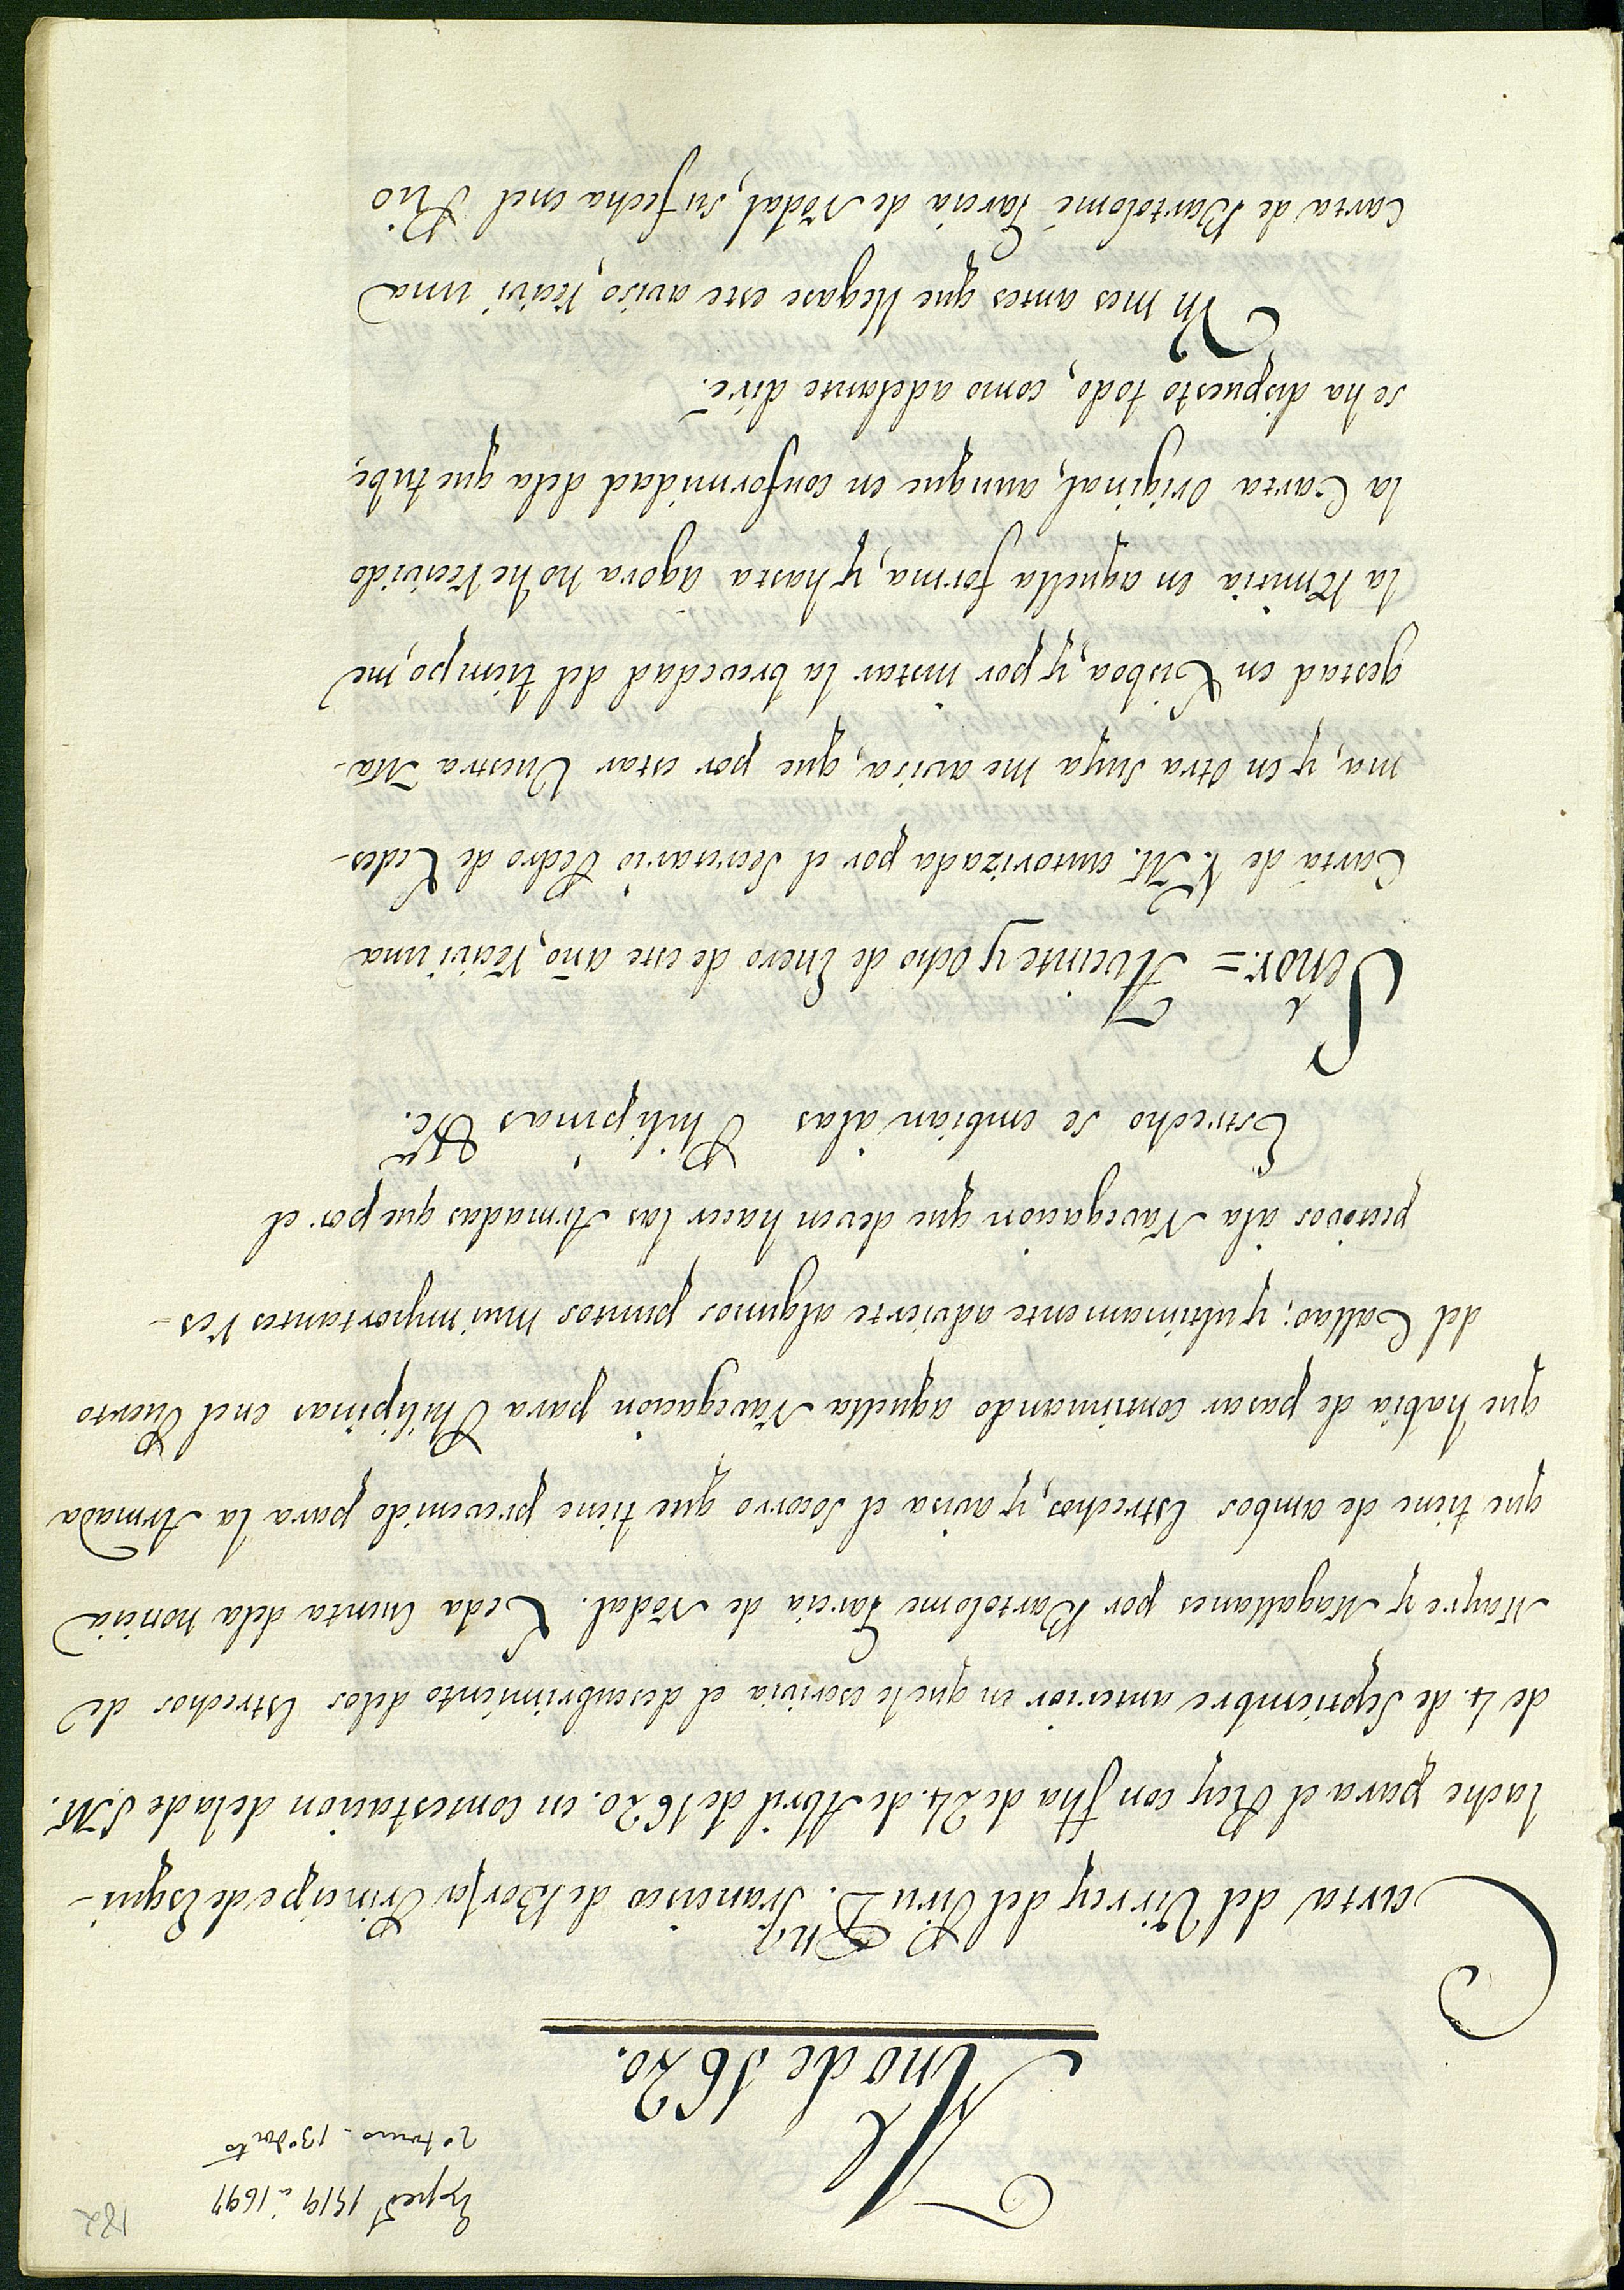 182
Exped.s 1519 a 1697
2º tomo - 13º docto
Año de 1620.
Perú
Carta del Virrey del Perú D. Francisco de Borja Principe de Esqui-
lache para el Rey con fha de 24. de Abril de 1620. en contestacion dela de S.M.
de 4. de Septiembre anterior en que le escrivia el descubrimiento delos Estrechos de
Mayre y Magallanes por Bartolome Garcia de Nodal. Le da Cuenta dela noticia
que tiene de ambos Estrechos, y avisa el Socorro que tiene prevenido para la Armada
que habia de pasar continuando aquella Navegacion para Philipinas enel Puerto
del Callao; y ultimamente advierte algunos puntos mui importantes res-
pectivos ála Navegacion que deven hacer las Armadas que por el
Estrecho se embian álas Philipinas &c.ª
Señor. = A veinte y ocho de Enero de este año, recivi una
Carta de V.M. autorizada por el Secretario Pedro de Ledes-
ma, y en otra suya me avisa, que por estar Vuestra Ma-
gestad en Lisboa, y por instar la brevedad del tiempo, me
la remitia en aquella forma, y hasta agora no he recivido
la Carta Original, aunque en conformidad dela que tube,
se ha dispuesto todo, como adelante diré.
Un mes antes que llegase este aviso, recivi una
Carta de Bartolomé Garcia de Nodal, su fecha enel Rio